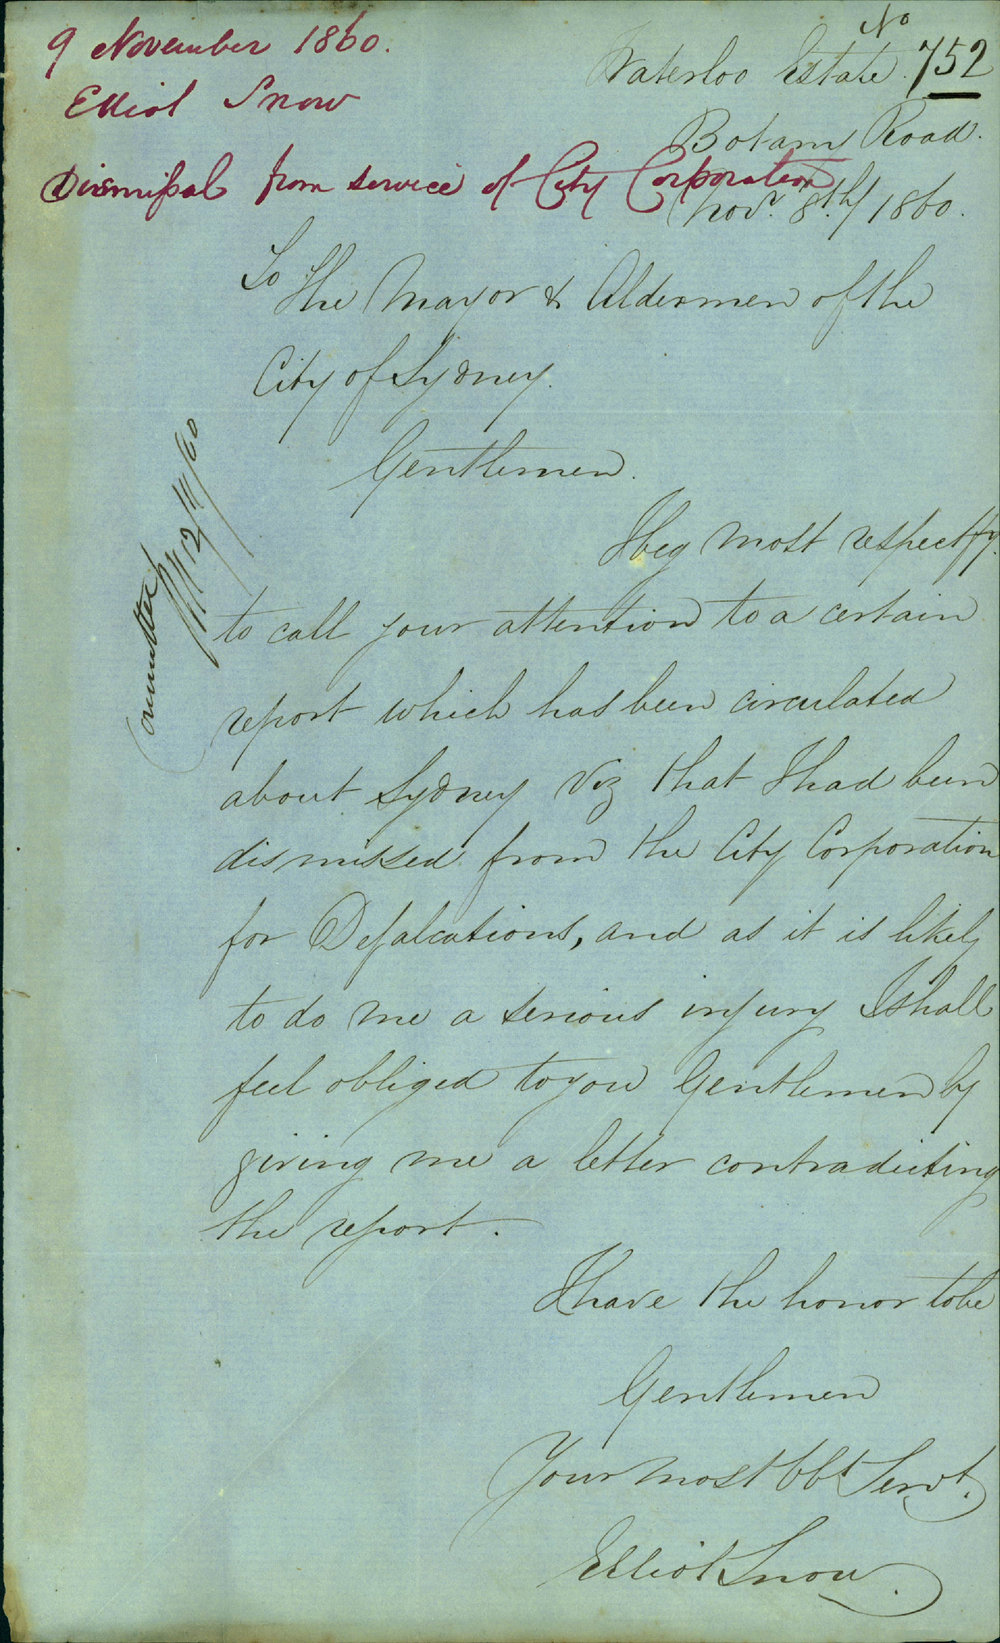 9 November 1860.
Elliot Snow
Dismissal from service of City Corporation
No 752
Waterloo Estate
Botany Road.
Novr. 8th/1860.
To The Mayor & Aldermen of the
City of Sydney.
Gentlemen.
I beg most respectfy.
to call your attention to a certain
report which has been circulated
about Sydney Viz that I had been
dismissed from the City Corporation
for Defalcations, and as it is likely
to do me a serious injury I shall
feel obliged to you Gentlemen by
giving me a letter contradicting
the report.
I have the honor to be
Gentlemen
Your most Obt Servt.
Elliot Snow
Committee
12/11/60